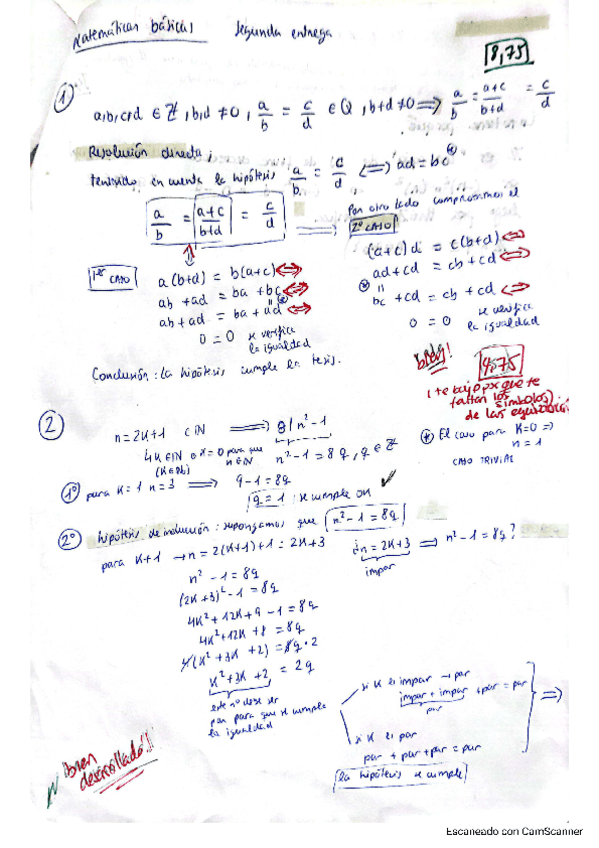 Matemáticas básicas segunda entrega
8,75
1) a,b,c,d ∈ Z, b,d ≠ 0, a/b = c/d ∈ Q, b+d ≠ 0 ⟹ a/b = (a+c)/(b+d) = c/d
Resolución directa:
teniendo en cuenta la hipótesis a/b = c/d ⟺ ad = bc
a/b = (a+c)/(b+d) = c/d
Por otro lado comprobamos el
2º CASO
1er CASO
a(b+d) = b(a+c) ⟺
ab + ad = ba + bc ⟺
ab + ad = ba + ad ⟺
0 = 0 se verifica
la igualdad
(a+c)d = c(b+d) ⟺
ad + cd = cb + cd ⟺
bc + cd = cb + cd ⟺
0 = 0 se verifica
la igualdad
Conclusión: la hipótesis cumple la tesis.
4,75
(te bajo px que te
faltan los símbolos)
de las equivalencias
2 n = 2K+1 ∈ N ⟹ 8 | n² - 1
K=0 para que
n ∈ N
n² - 1 = 8q, q ∈ Z
(*) El caso para K=0 ⟹
n = 1
CASO TRIVIAL
1º para K = 1 n = 3 ⟹ 9 - 1 = 8q
q = 1 : se cumple
2º hipótesis de inducción: supongamos que n² - 1 = 8q
para K+1 → n = 2(K+1)+1 = 2K+3 ¿n = 2K+3 ⟹ n² - 1 = 8q?
impar
n² - 1 = 8q
(2K+3)² - 1 = 8q
4K² + 12K + 9 - 1 = 8q
4K² + 12K + 8 = 8q
4(K² + 3K + 2) = 8q · 2
K² + 3K + 2 = 2q
este nº debe ser
par para que se cumpla
la igualdad
si K es impar → par
impar + impar + par = par
par
si K es par
par + par + par = par
⟹
la hipótesis se cumple
¡bien
desarrollado!
Escaneado con CamScanner